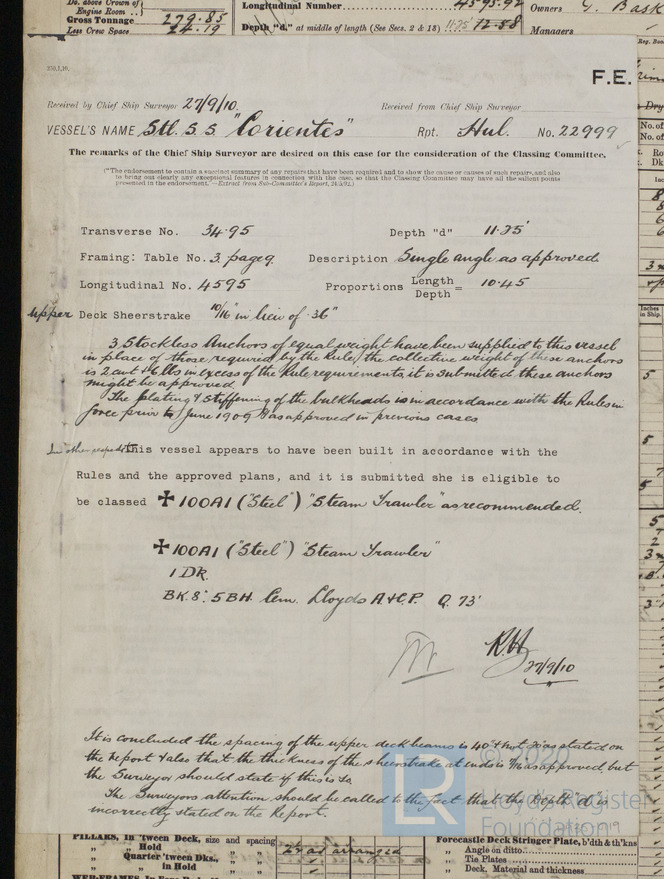 Do. above Crown of
Engine Room
Gross Tonnage 279.85
Less Crew Space 24.19
Longitudinal Number 4595.92
Depth "d" at middle of length (See Secs. 2 & 13) 11.25 12.58
Owners G. Bask
Managers
F.E.
Received by Chief Ship Surveyor 27/9/10.
Received from Chief Ship Surveyor
VESSEL'S NAME Stl. S. S. "Corientes" Rpt. Hul. No. 22999
The remarks of the Chief Ship Surveyor are desired on this case for the consideration of the Classing Committee.
("The endorsement to contain a succinct summary of any repairs that have been required and to show the cause or causes of such repairs, and also
to bring out clearly any exceptional features in connection with the case, so that the Classing Committee may have all the salient points
presented in the endorsement."—Extract from Sub-Committee's Report, 24/5/92.)
Transverse No. 34.95 Depth "d" 11.25'
Framing: Table No. 3. page 9. Description Single angle as approved
Longitudinal No. 4595 Proportions Length/Depth = 10.45
Upper Deck Sheerstrake 10/16" in lieu of .36"
3 Stockless Anchors of equal weight have been supplied to this vessel
in place of those required by the Rule, the collective weight of these anchors
is 2 cwt 16 lbs in excess of the Rule requirements, it is submitted these anchors
might be approved
The plating & stiffening of the bulkheads is in accordance with the Rules in
force prior to June 1909 & as approved in previous cases
In other respects this vessel appears to have been built in accordance with the
Rules and the approved plans, and it is submitted she is eligible to
be classed ✠ 100A1 ("Steel") "Steam Trawler" as recommended.
✠ 100A1 ("Steel") "Steam Trawler"
1 DK.
BK. 8". 5 BH. Cem. Lloyds A & C.P. Q. 73'
27/9/10
It is concluded the spacing of the upper deck beams is 40" & not as stated on
the Report & also that the thickness of the sheerstrake at ends is as approved but
the Surveyor should state if this is so.
The Surveyors attention should be called to the fact that the Depth "d" is
incorrectly stated on the Report.
© 2020
LR
Lloyd's Register
Foundation
PILLARS, In 'tween Deck, size and spacing
" Hold
" Quarter 'tween Dks.,
" in Hold
Forecastle Deck Stringer Plate, b'dth & th'kns
" Angle on ditto
" Tie Plates
" Deck, Material and thickness